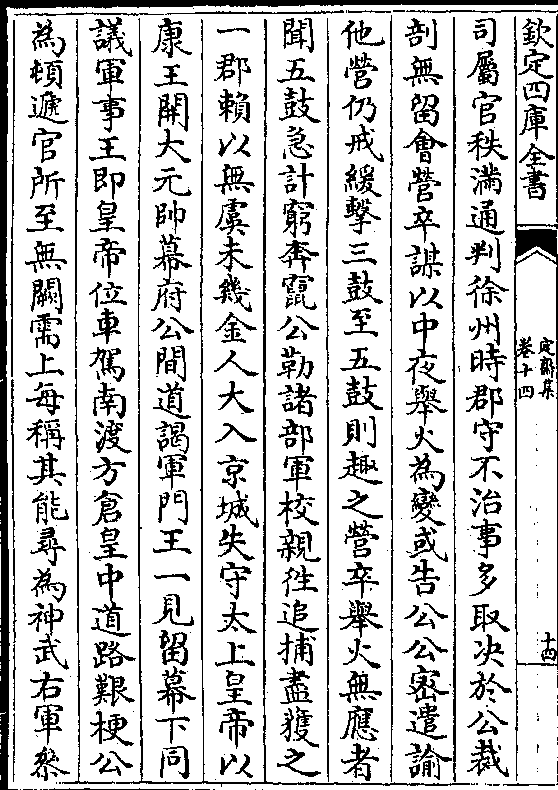 欽定四庫全書
定齋集
卷十四
十四
司屬官秩滿通判徐州時郡守不治事多取決於公裁
剖無留會營卒謀以中夜舉火為變或告公公密遣諭
他營仍戒緩擊三鼓至五鼓則趣之營卒舉火無應者
聞五鼓急計窮奔竄公勒諸部軍校親徃追捕盡獲之
一郡賴以無虞未幾金人大入京城失守太上皇帝以
康王開大元帥幕府公間道謁軍門王一見留幕下同
議軍事王即皇帝位車駕南渡方倉皇中道路艱梗公
為頓遞官所至無闕需上每稱其能尋為神武右軍叅